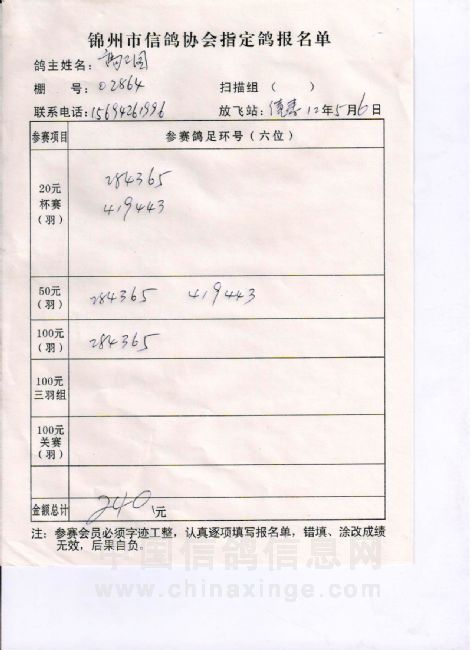 锦州市信鸽协会指定鸽报名单
鸽主姓名:
棚 号: 02864 扫描组 ( )
联系电话: 15694261996 放飞站: 绥惠 12年5月6日
参赛项目 参赛鸽足环号(六位)
20元
杯赛
(羽)
284365
419443
50元
(羽)
284365 419443
100元
(羽)
284365
100元
三羽组
100元
关赛
(羽)
金额总计 240元
注: 参赛会员必须字迹工整,认真逐项填写报名单,错填、涂改成绩
无效,后果自负。
中国信鸽信息网
www.chinaxinge.com